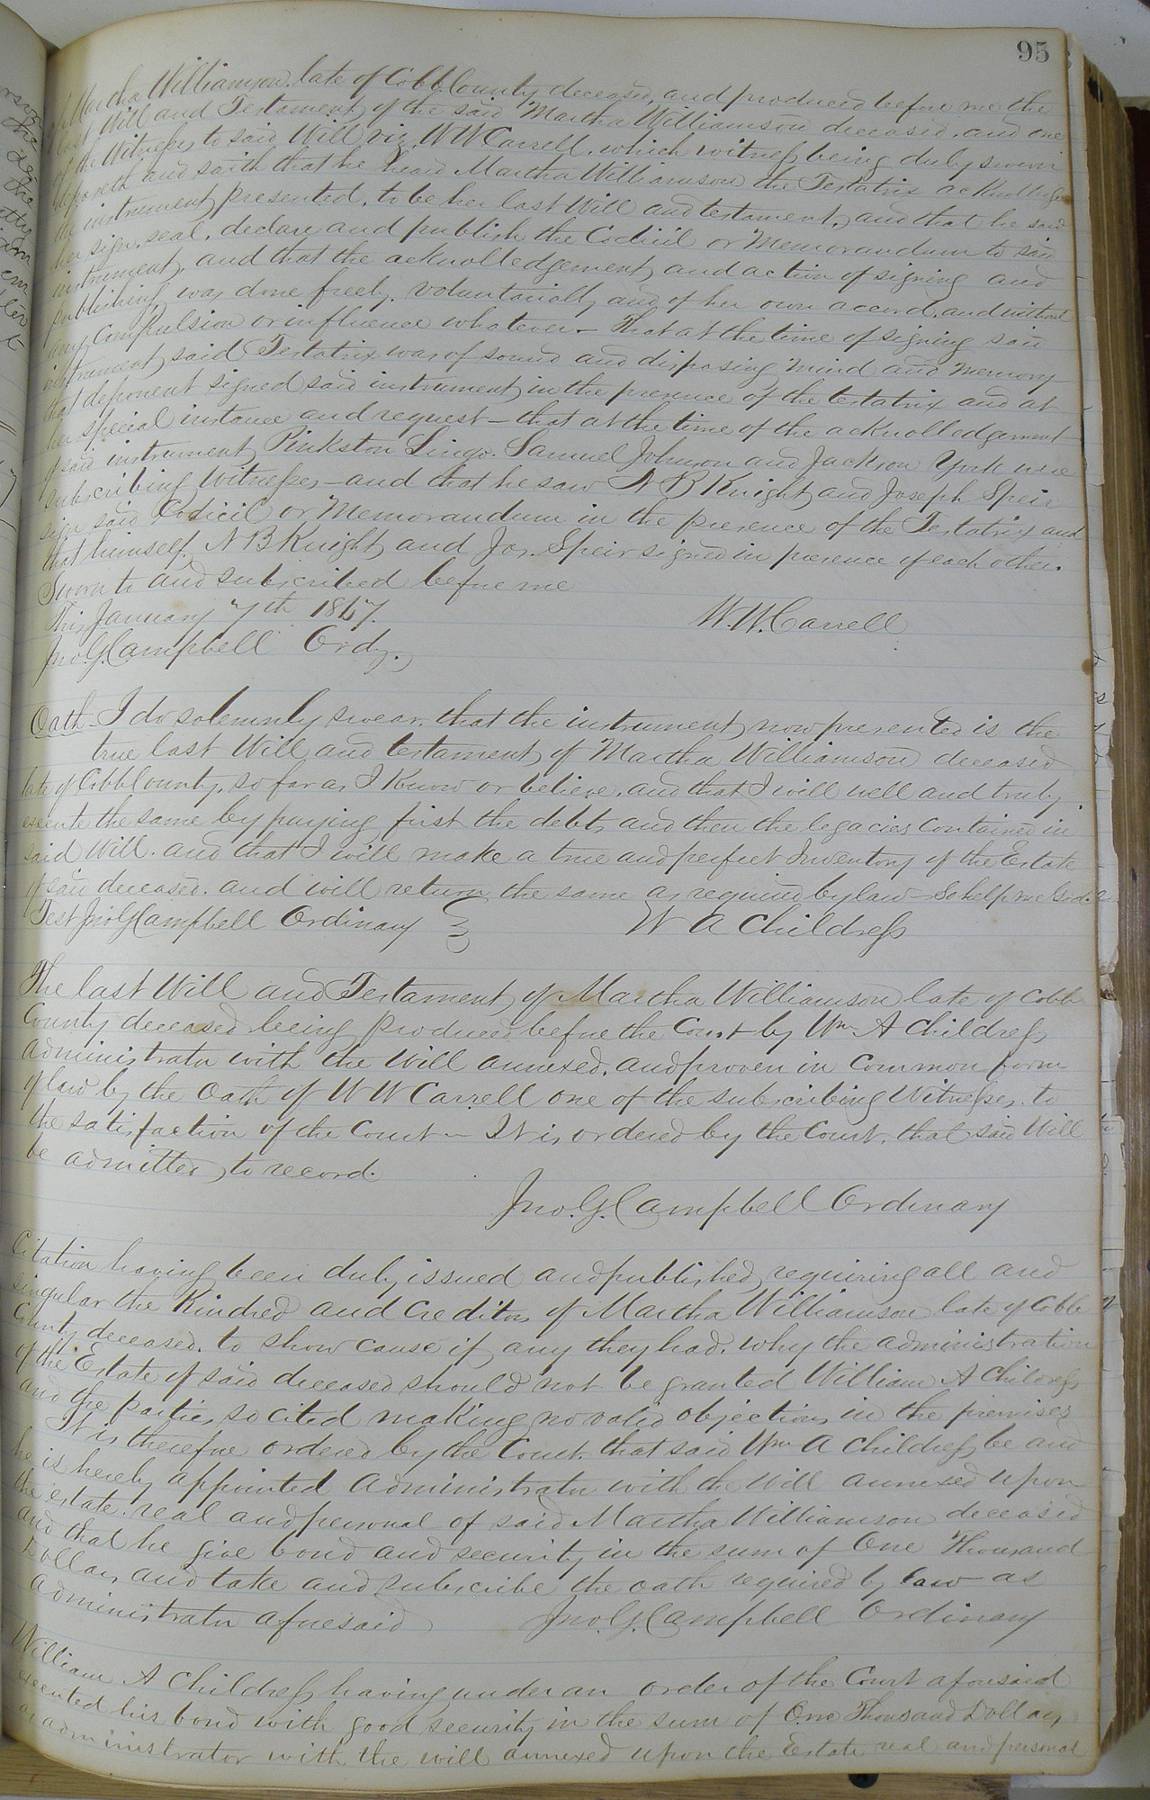 95
of Martha Williamson, late of Cobb County deceased, and produced before me the
last Will and Testament of the said Martha Williamson deceased, and one
of the Witnesses to said Will viz. W W Carrell, which witness being duly sworn
deposeth and saith that he heard Martha Williamson the Testatrix acknolledge
the instrument presented, to be her last Will and testament, and that he said
her sign, seal, declare and publish the Codicil or Memorandum to said
instrument, and that the acknolledgement and action of signing and
publishing was done freely, voluntarially and of her own accord, and without
any compulsion or influence whatever - That at the time of signing said
instrument said Testatrix was of sound and disposing mind and memory
that deponent signed said instrument in the presence of the testatrix and at
her special instance and request - that at the time of the acknolledgement
of said instrument Pinkston Lingo, Samuel Johnson and Jackson York were
subscribing witnesses - and that he saw N B Knight and Joseph Speir
sign said Codicil or Memorandum in the presence of the Testatrix and
that himself, N B Knight and Jos. Speir signed in presence of each other.
Sworn to and subscribed before me
This January 7th 1867. W. W. Carrell
Jno. G. Campbell Ordy.
Oath - I do solemnly swear, that the instrument now presented is the
true last Will and testament of Martha Williamson deceased
late of Cobb County, so far as I know or believe, and that I will well and truly
execute the same by paying first the debts and then the legacies contained in
said Will. and that I will make a true and perfect Inventory of the Estate
of said deceased. and will return the same as required by law - So help me God.
Test Jno G Campbell Ordinary W A Childress
The last Will and Testament of Martha Williamson late of Cobb
County deceased being produced before the Court by Wm A Childress
administrator with the Will annexed, and proven in common form
of law by the Oath of W W Carrell one of the subscribing Witnesses, to
the satisfaction of the Court - It is ordered by the Court, that said Will
be admitted to record.
Jno. G. Campbell Ordinary
Citation having been duly issued and published, requiring all and
singular the Kindred and Creditors of Martha Williamson late of Cobb
County deceased, to show cause if any they had, why the administration
of the Estate of said deceased should not be granted William A Childress
and the parties so cited making no valid objections in the premises
It is therefore ordered by the Court, that said Wm A Childress be and
he is hereby appointed Administrator with the Will annexed upon
the estate real and personal of said Martha Williamson deceased
and that he give bond and security in the sum of One Thousand
Dollars and take and subscribe the oath required by law as
administrator aforesaid Jno. G. Campbell Ordinary
William A Childress having under an order of the Court aforesaid
executed his bond with good security in the sum of One Thousand Dollars
as administrator with the will annexed upon the Estate real and personal